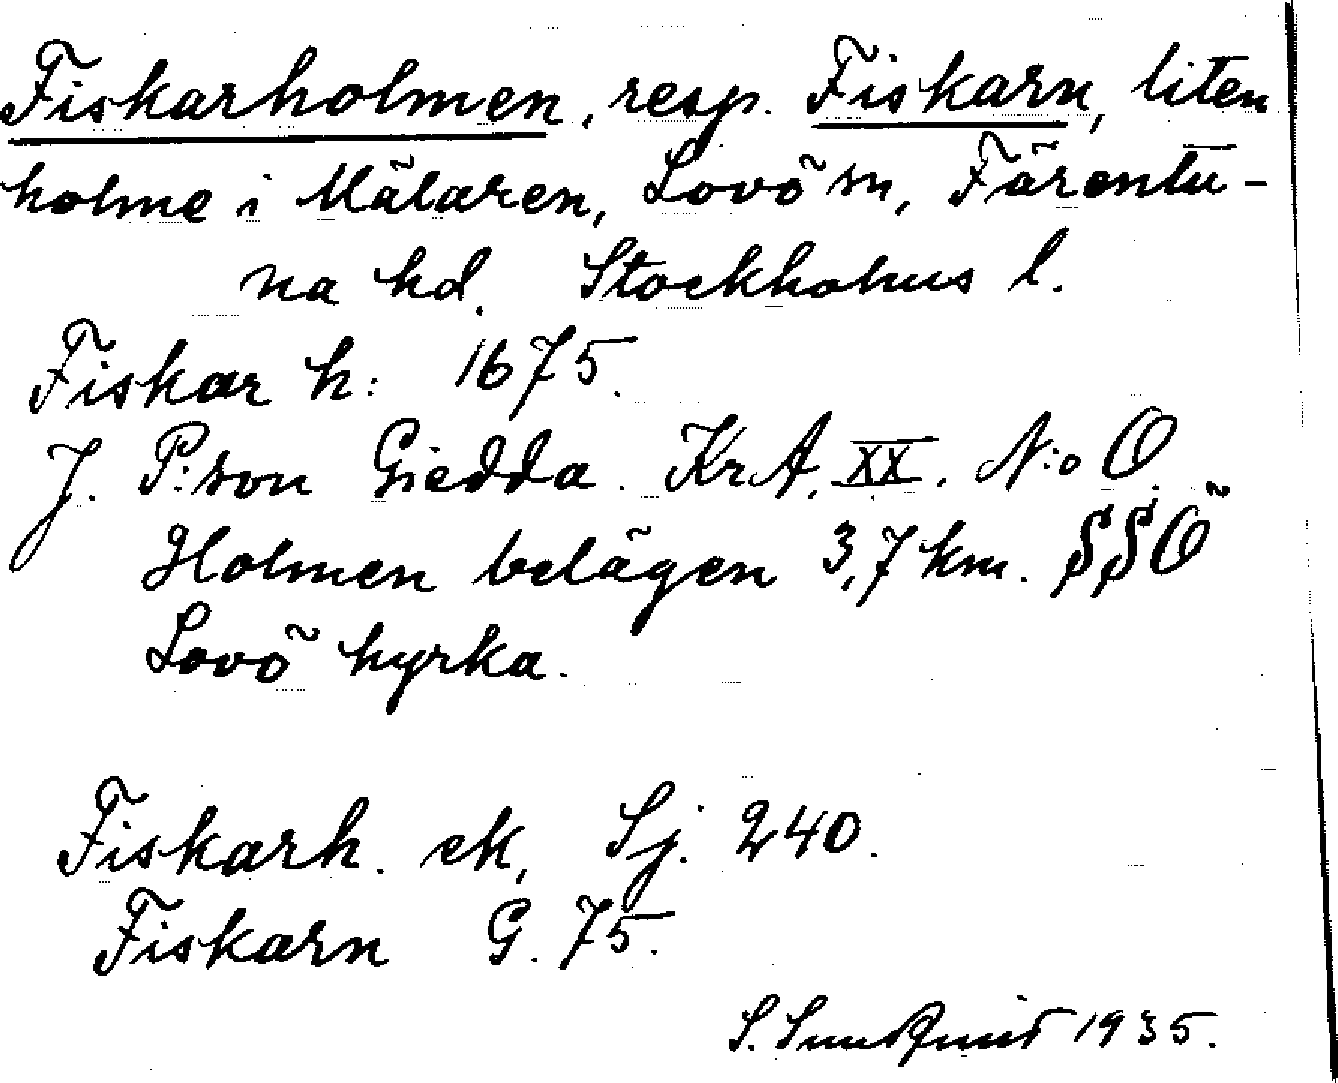 Fiskarholmen, resp. Fiskarn, liten
holme i Mälaren, Lovö sn, Färentu-
na hd. Stockholms l.
Fiskar h: 1675.
J. P:son Giedda. KrA. XX. N:o O.
Holmen belägen 3,7 km. SSÖ
Lovö kyrka.
Fiskarh. ek, Sj. 240.
Fiskarn G. 75.
S. Sundquist 1935.